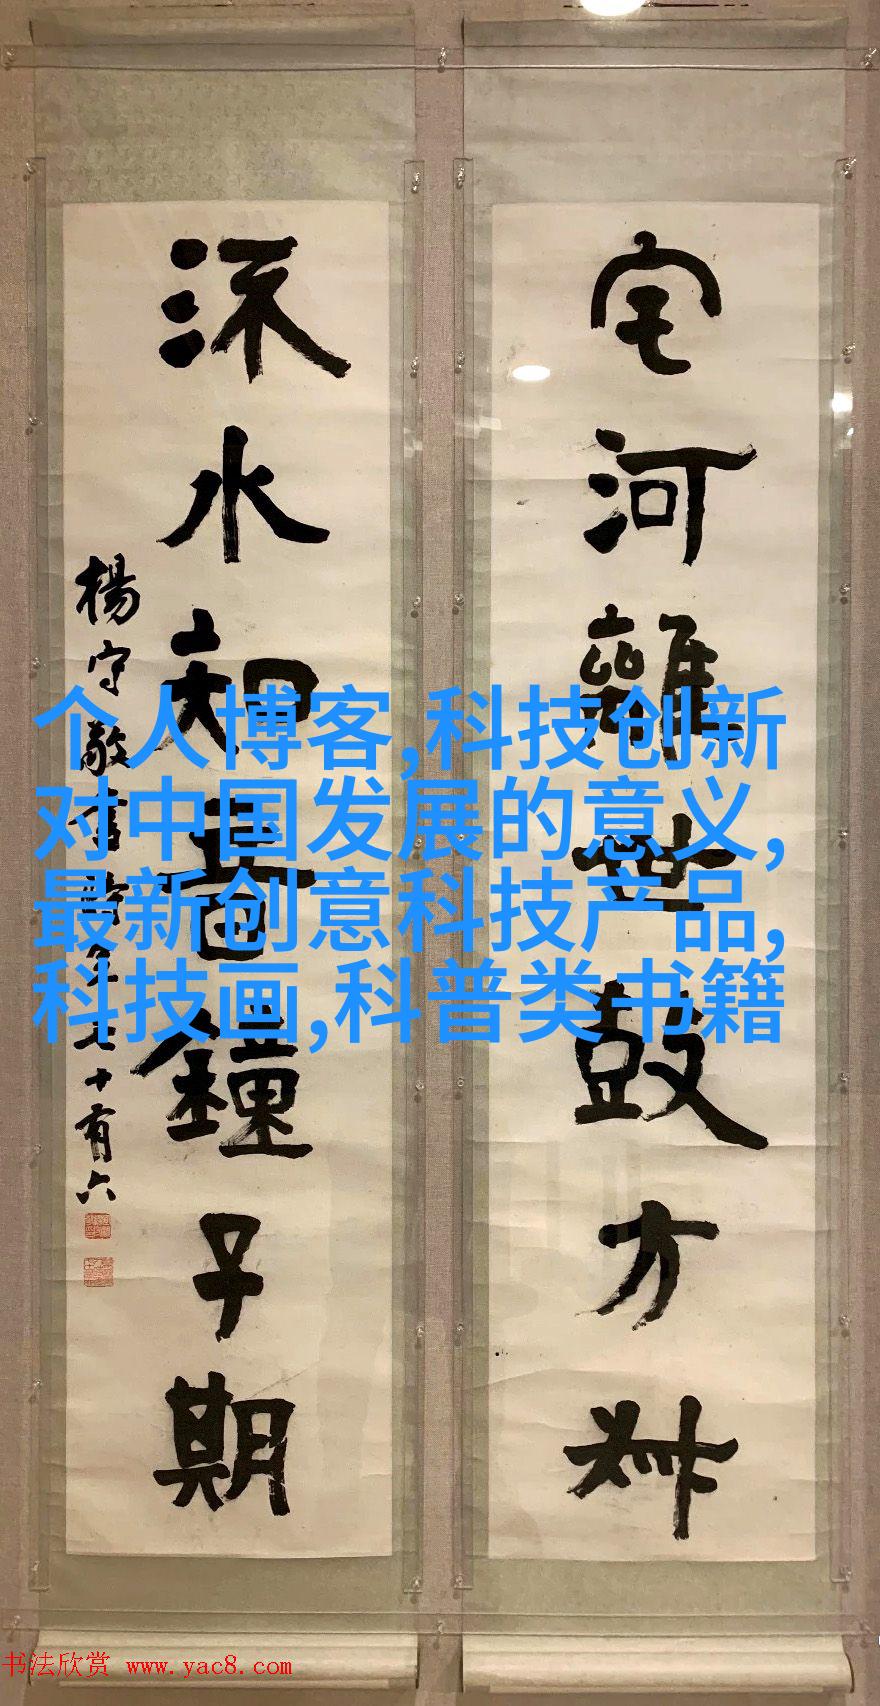 宅河離世鼓方叔
流水知音鐘子期
楊守敬書時年七十有六
个人博客,科技创新
对中国发展的意义,
最新创意科技产品,
科技画,科普类书籍
书法欣赏 www.yac8.com